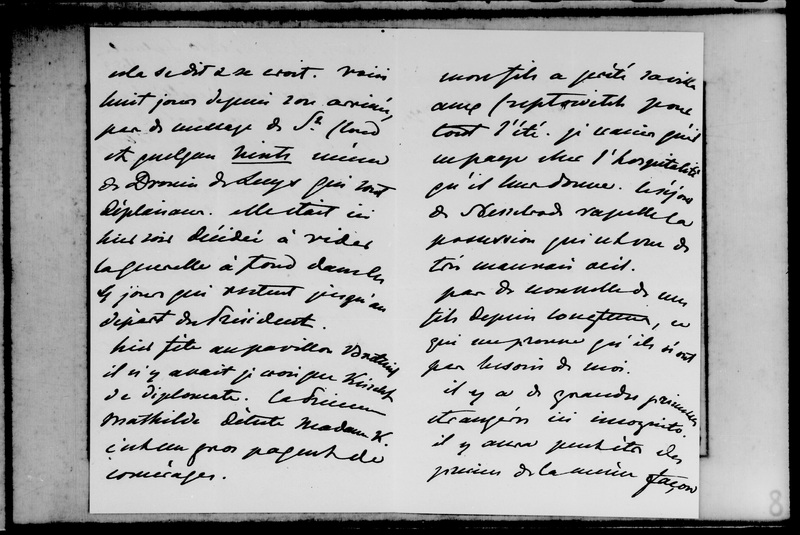 cela se dit & se croit. voici
huit jours depuis son arrivée,
pas de message de St Cloud
et quelques vents même
de Drouin de Lhuys qui sont
déplaisans. elle était ici
hier soir décidée à vider
la querelle à fond dans les
4 jours qui restent jusqu'au
départ du Président.
hier fête au pavillon
il n'y avait je crois que Kisseleff
de diplomate. la Princesse
Mathilde déteste Madame K.
c'est un gros paquet de
comérages.
mon fils a prêté sa villa
aux Creptowitch pour
tout l'été. je
chez l'hospitalité
qu'il leur donne. le séjour
de Nesselrode rappelle la
possession qui est vue de
très mauvais oeil.
pas de nouvelle de mes
fils depuis longtems, ce
qui me prouve qu'ils n'ont
pas besoin de moi.
il y a de grandes princesses
étrangères ici incognito.
il y aura peut être des
princes de la même façon
8